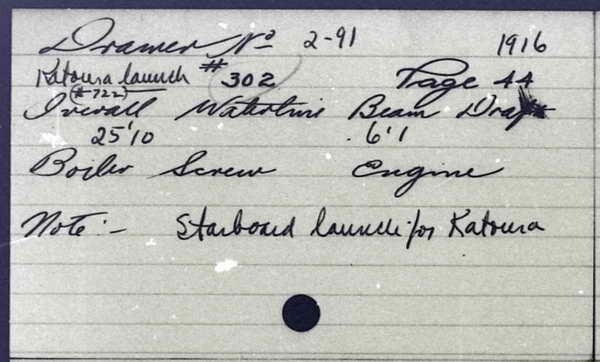 Drawer Nº 2-91 1916
Katoura launch # 302 Page 44
(#722)
Overall Waterline Beam Draft
25'10 6'1
Boiler Screw Engine
Note:- Starboard launch for Katoura